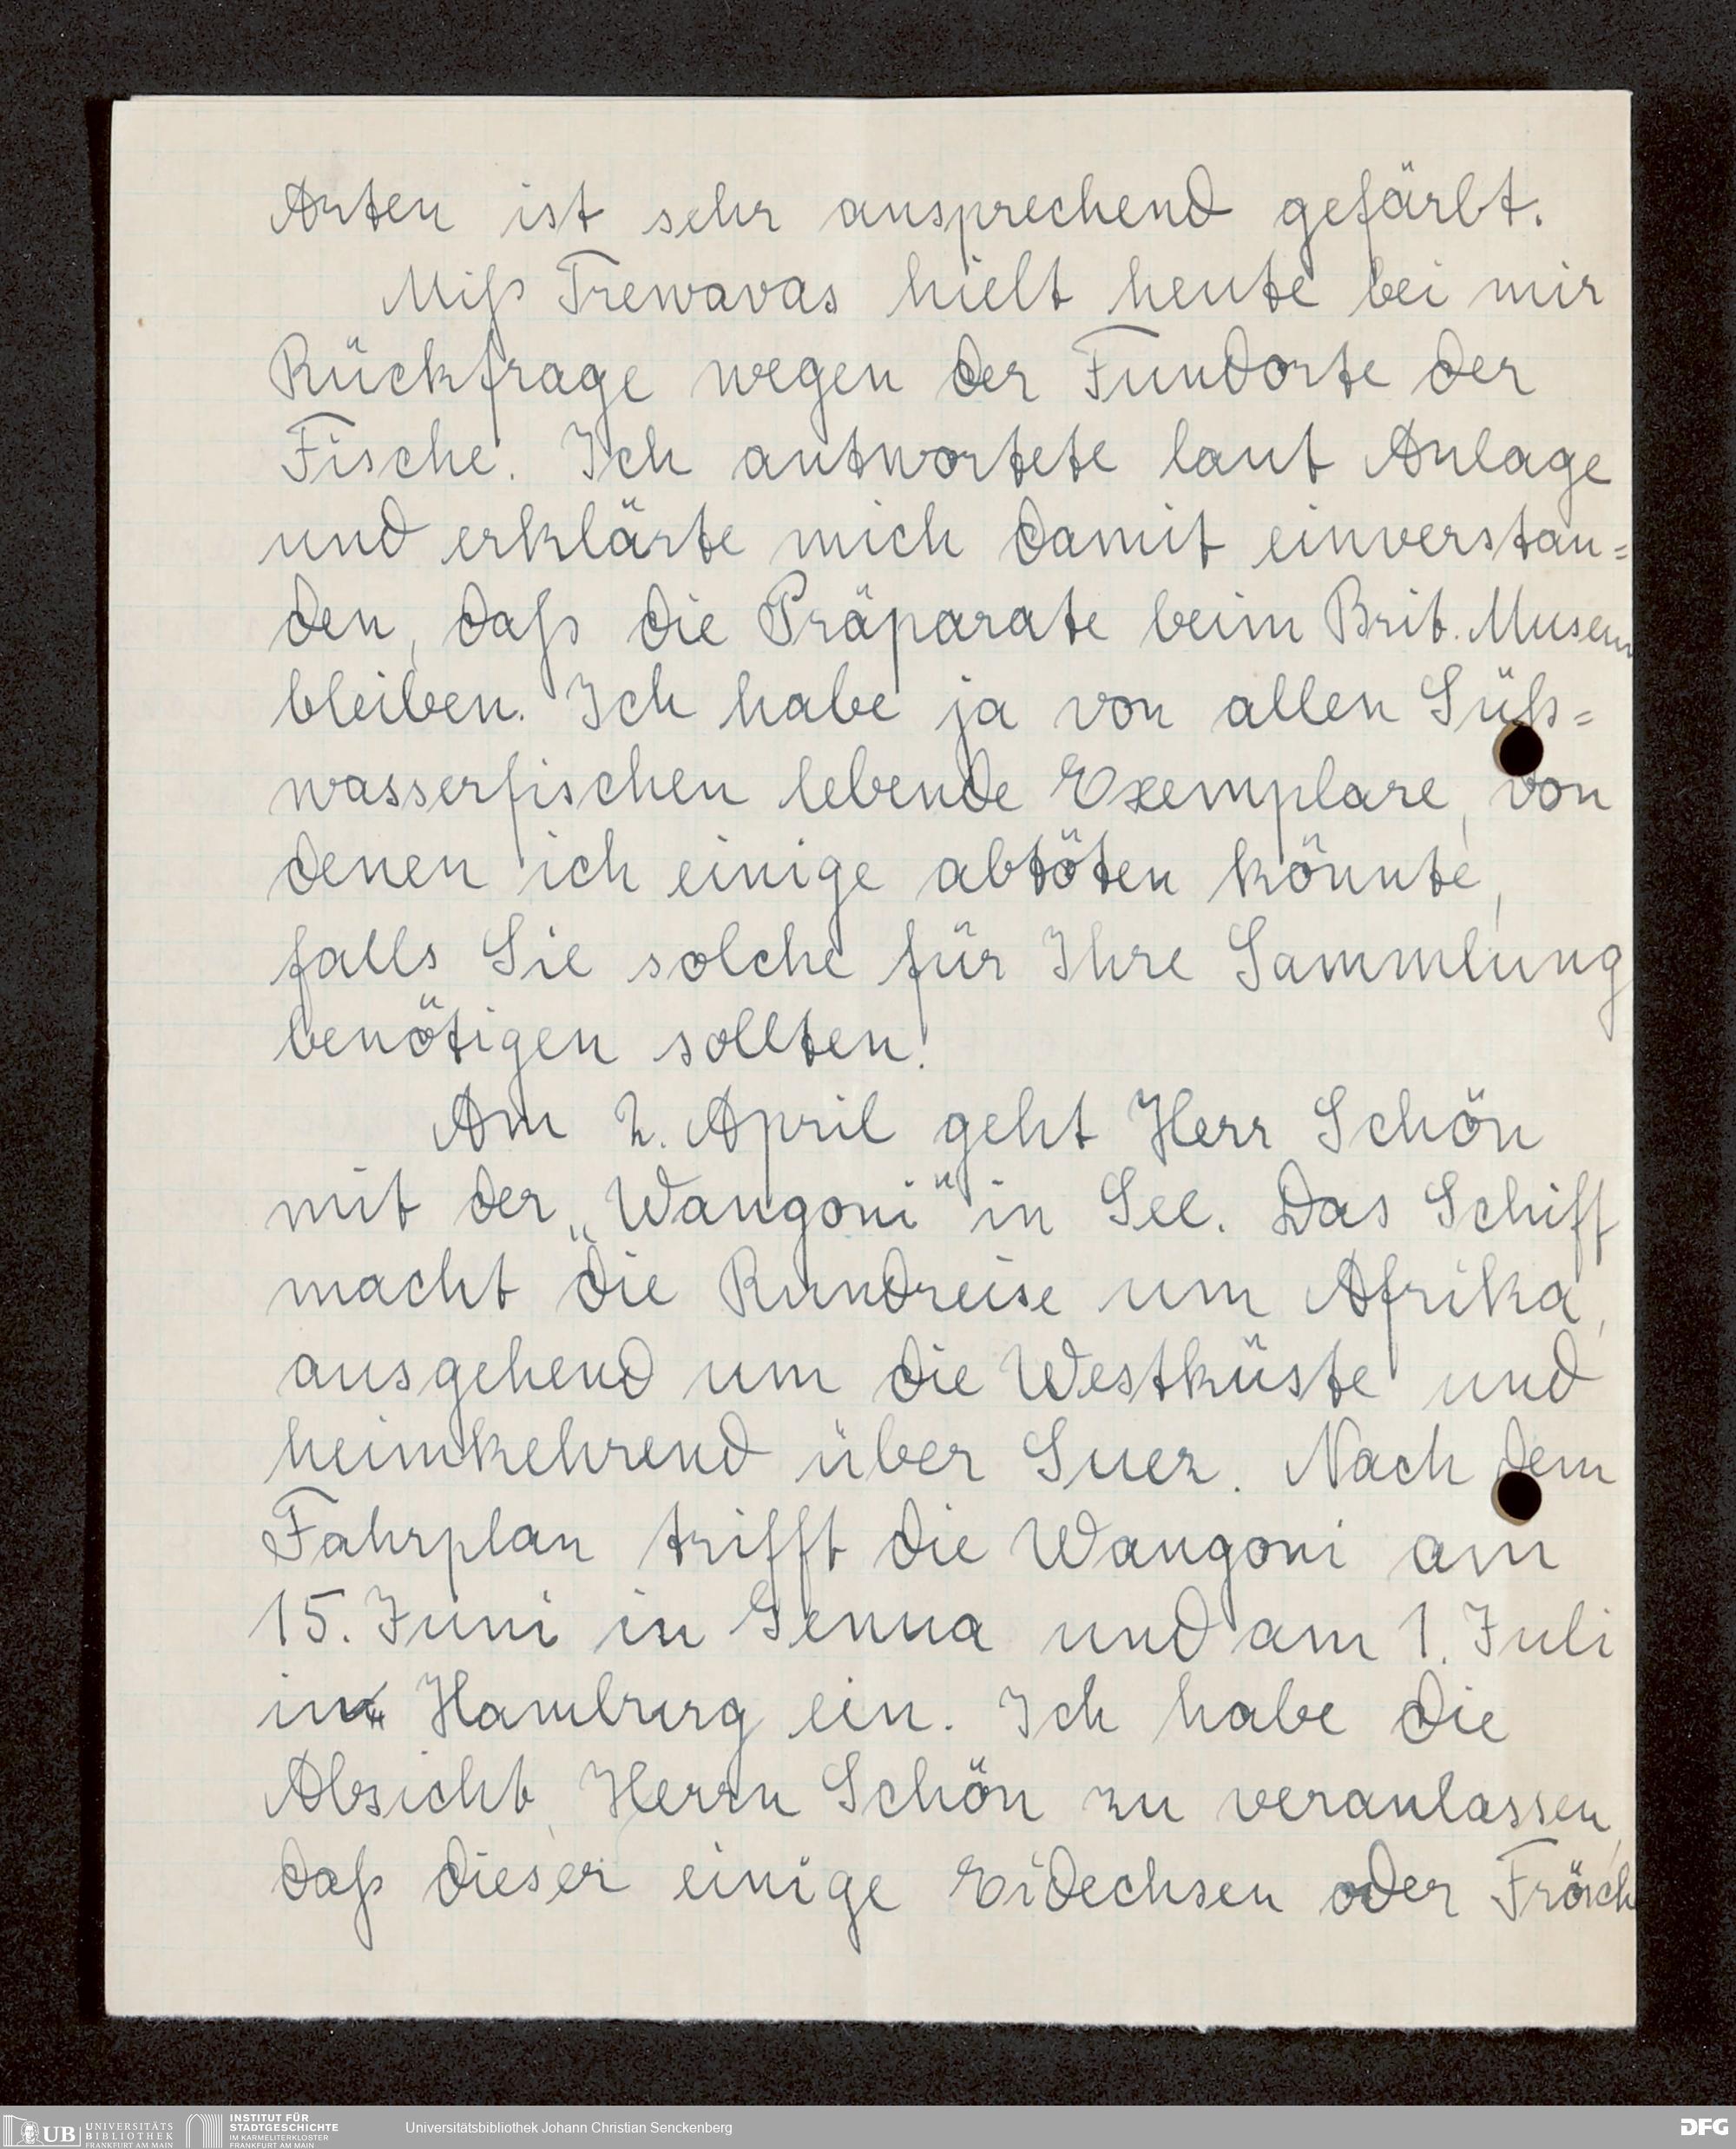 Arten ist sehr ansprechend gefärbt.
Miß Trewavas hielt heute bei mir
Rückfrage wegen der Fundorte der
Fische. Ich antwortete laut Anlage
und erklärte mich damit einverstan=
den, daß die Präparate beim Brit. Museum
bleiben. Ich habe ja von allen Süß=
wasserfischen lebende Exemplare, von
denen ich einige abtöten könnte,
falls Sie solche für Ihre Sammlung
benötigen sollten.
Am 2. April geht Herr Schön
mit der „Wangoni" in See. Das Schiff
macht die Rundreise um Afrika,
ausgehend um die Westküste und
heimkehrend über Suez. Nach dem
Fahrplan trifft die Wangoni am
15. Juni in Genua und am 1. Juli
in Hamburg ein. Ich habe die
Absicht, Herrn Schön zu veranlassen,
daß dieser einige Eidechsen oder Frösch
UB UNIVERSITÄTS
BIBLIOTHEK
FRANKFURT AM MAIN
INSTITUT FÜR
STADTGESCHICHTE
IM KARMELITERKLOSTER
FRANKFURT AM MAIN
Universitätsbibliothek Johann Christian Senckenberg
DFG